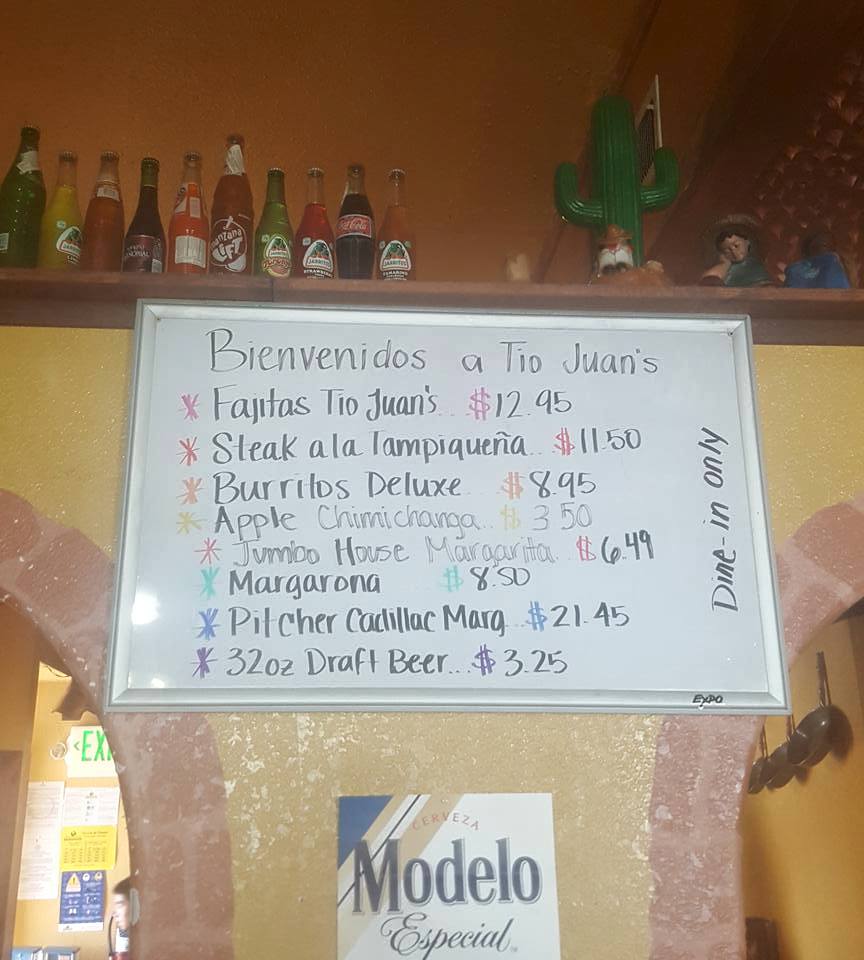 manzana
LiFT
JARRITOS
JARRITOS
Coca-Cola
JARRITOS
Bienvenidos a Tio Juan's
* Fajitas Tio Juan's... $12.95
* Steak a la Tampiqueña.. $11.50
* Burritos Deluxe... $8.95
* Apple Chimichanga.. $3.50
* Jumbo House Margarita.. $6.49
* Margarona $8.50
* Pitcher Cadillac Marg...$21.45
* 32oz Draft Beer...$3.25
Dine-in only
EXPO
EXI
CERVEZA
Modelo
Especial